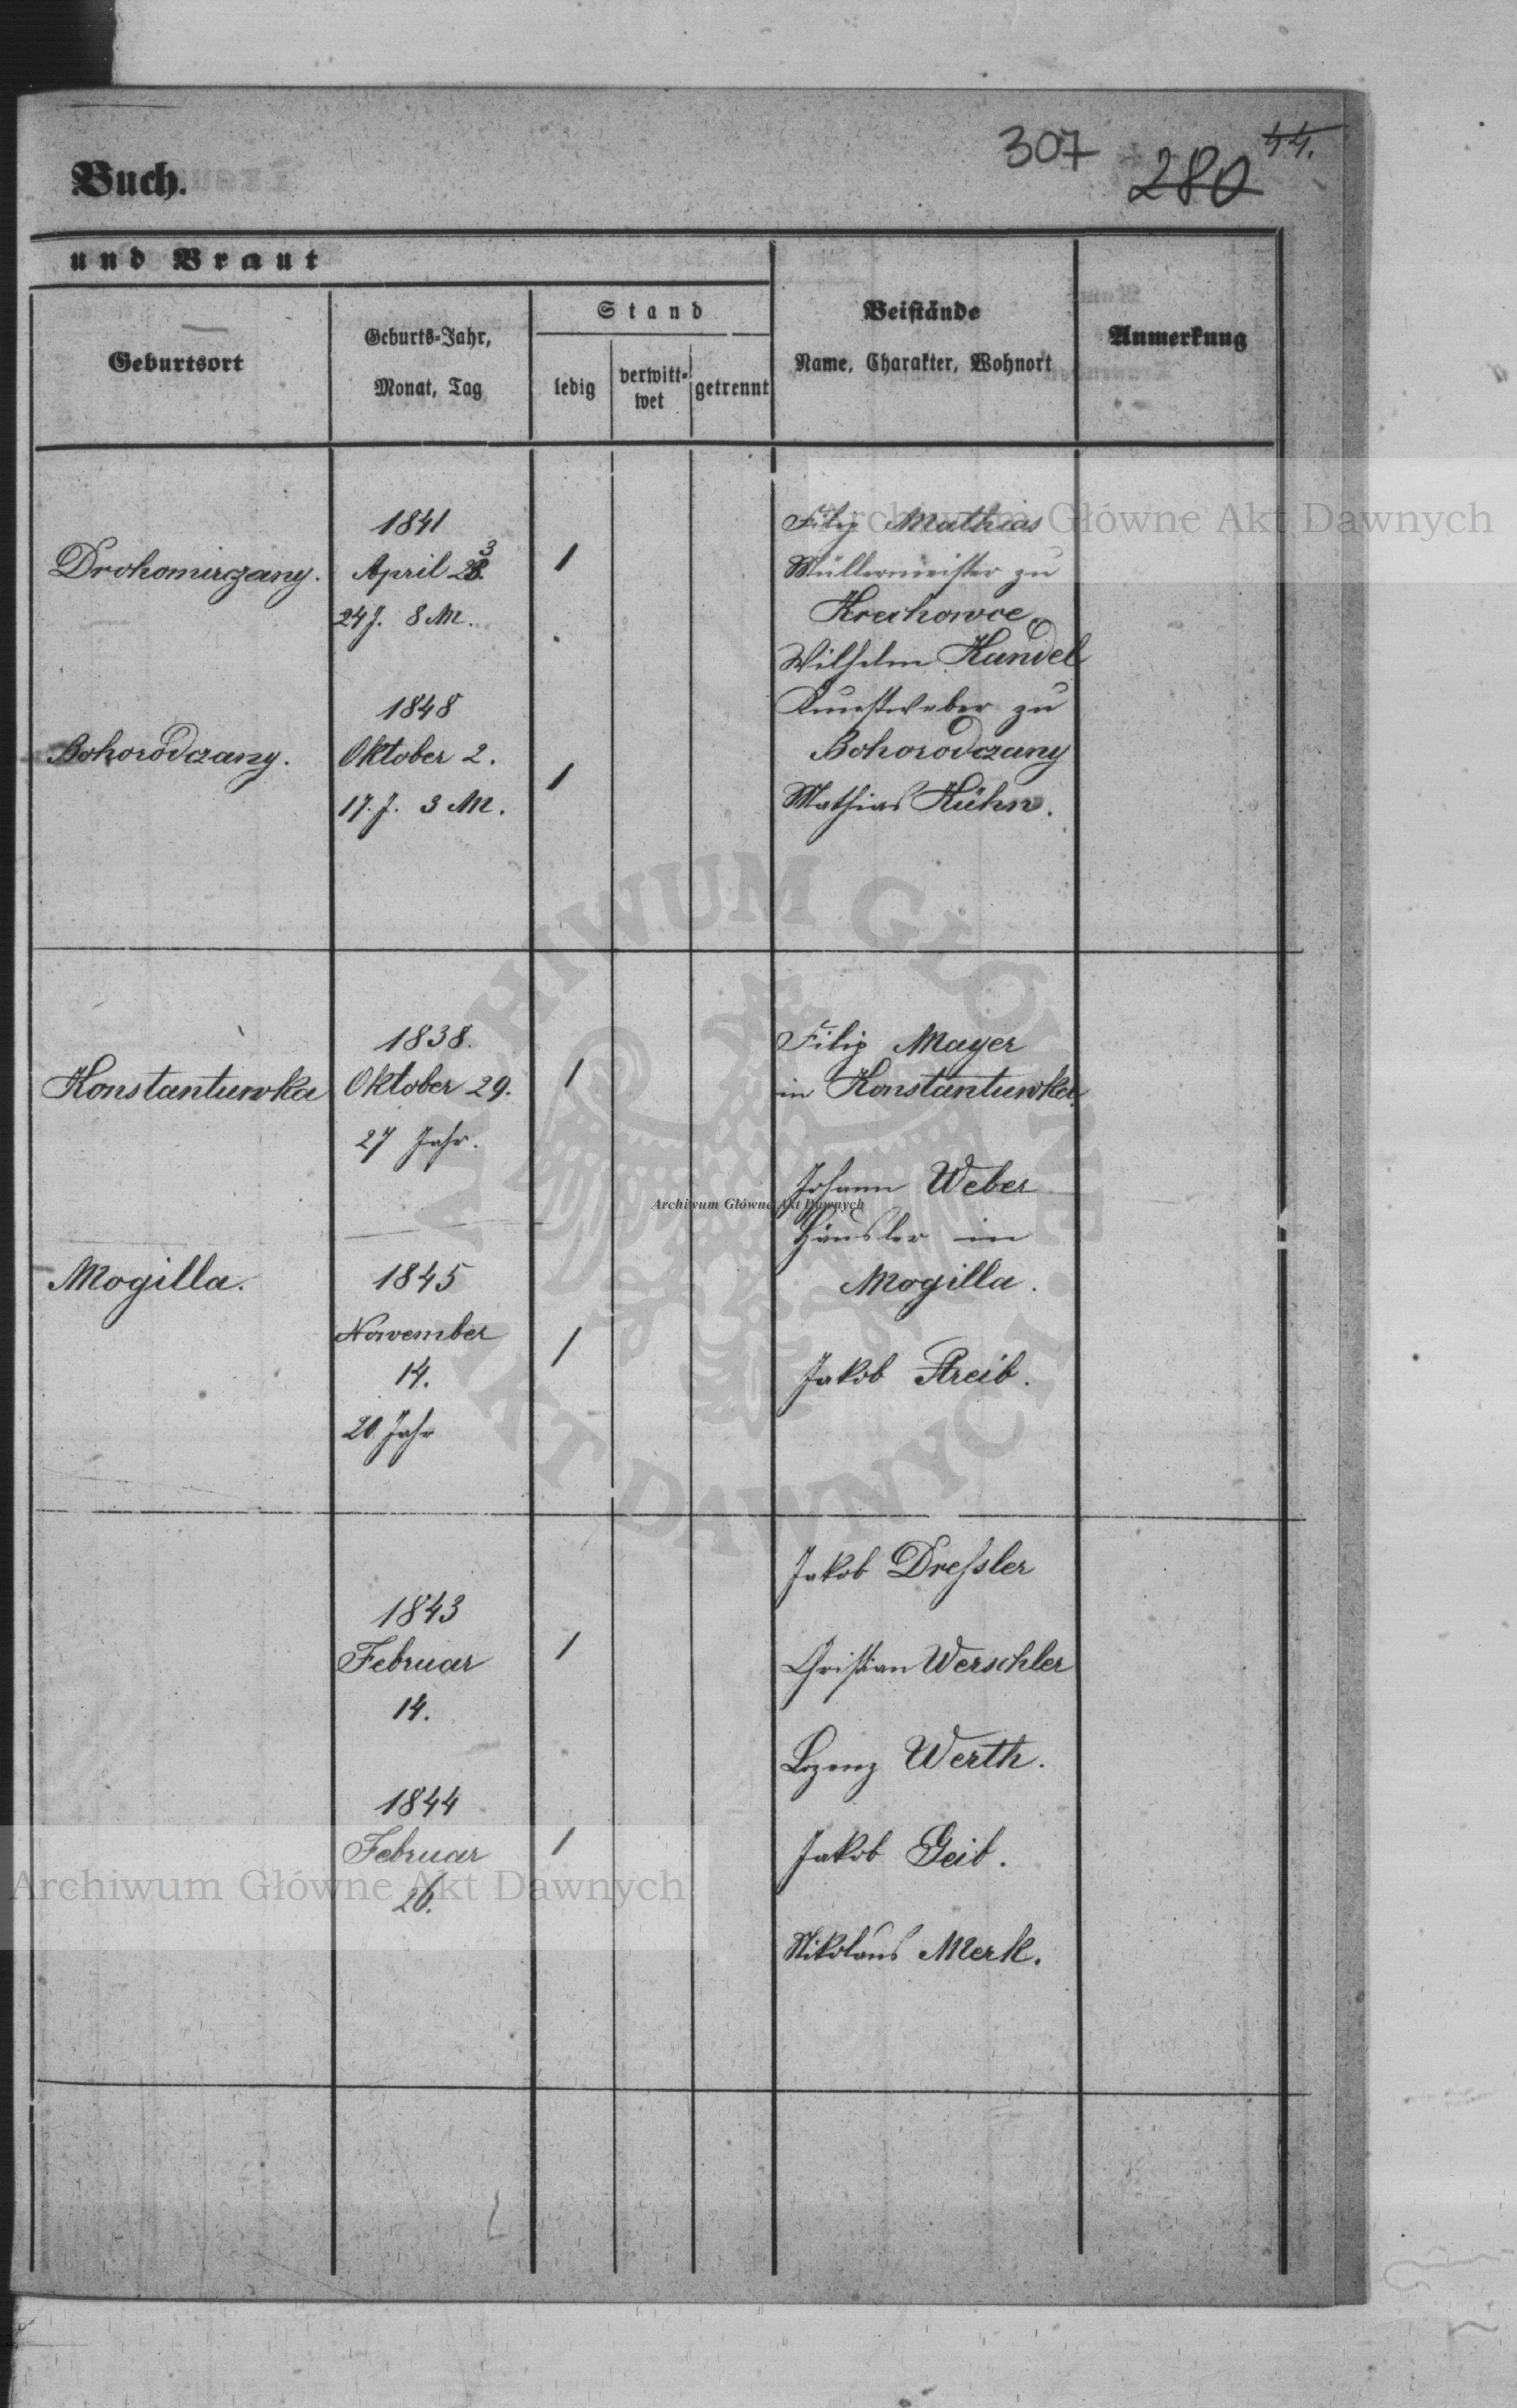 307
280
44.
Buch.
und Braut
Geburtsort
Geburts-Jahr,
Monat, Tag
Stand
ledig
verwitt-
wet
getrennt
Beistände
Name, Charakter, Wohnort
Anmerkung
Drohomirczany.
1841
April 23.
24 J. 8 M.
1
Bohorodczany.
1848
Oktober 2.
17. J. 3 M.
1
Filip Mathias
Müllermeister zu
Krechowce
Wilhelm Kandel
Kunstweber zu
Bohorodczany
Mathias Kühn.
Konstantuwka
1838.
Oktober 29.
27 Jahr.
1
Mogilla.
1845
November
14.
20 Jahr
1
Filip Mayer
in Konstantuwka
Johann Weber
Häusler in
Mogilla.
Jakob Streib.
1843
Februar
14.
1
1844
Februar
26.
1
Jakob Dreſsler
Christian Werschler
Lorenz Werth.
Jakob Geib.
Nikolaus Merk.
Archiwum Główne Akt Dawnych
ARCHIWUM GŁÓWNE AKT DAWNYCH
Archiwum Główne Akt Dawnych
Archiwum Główne Akt Dawnych